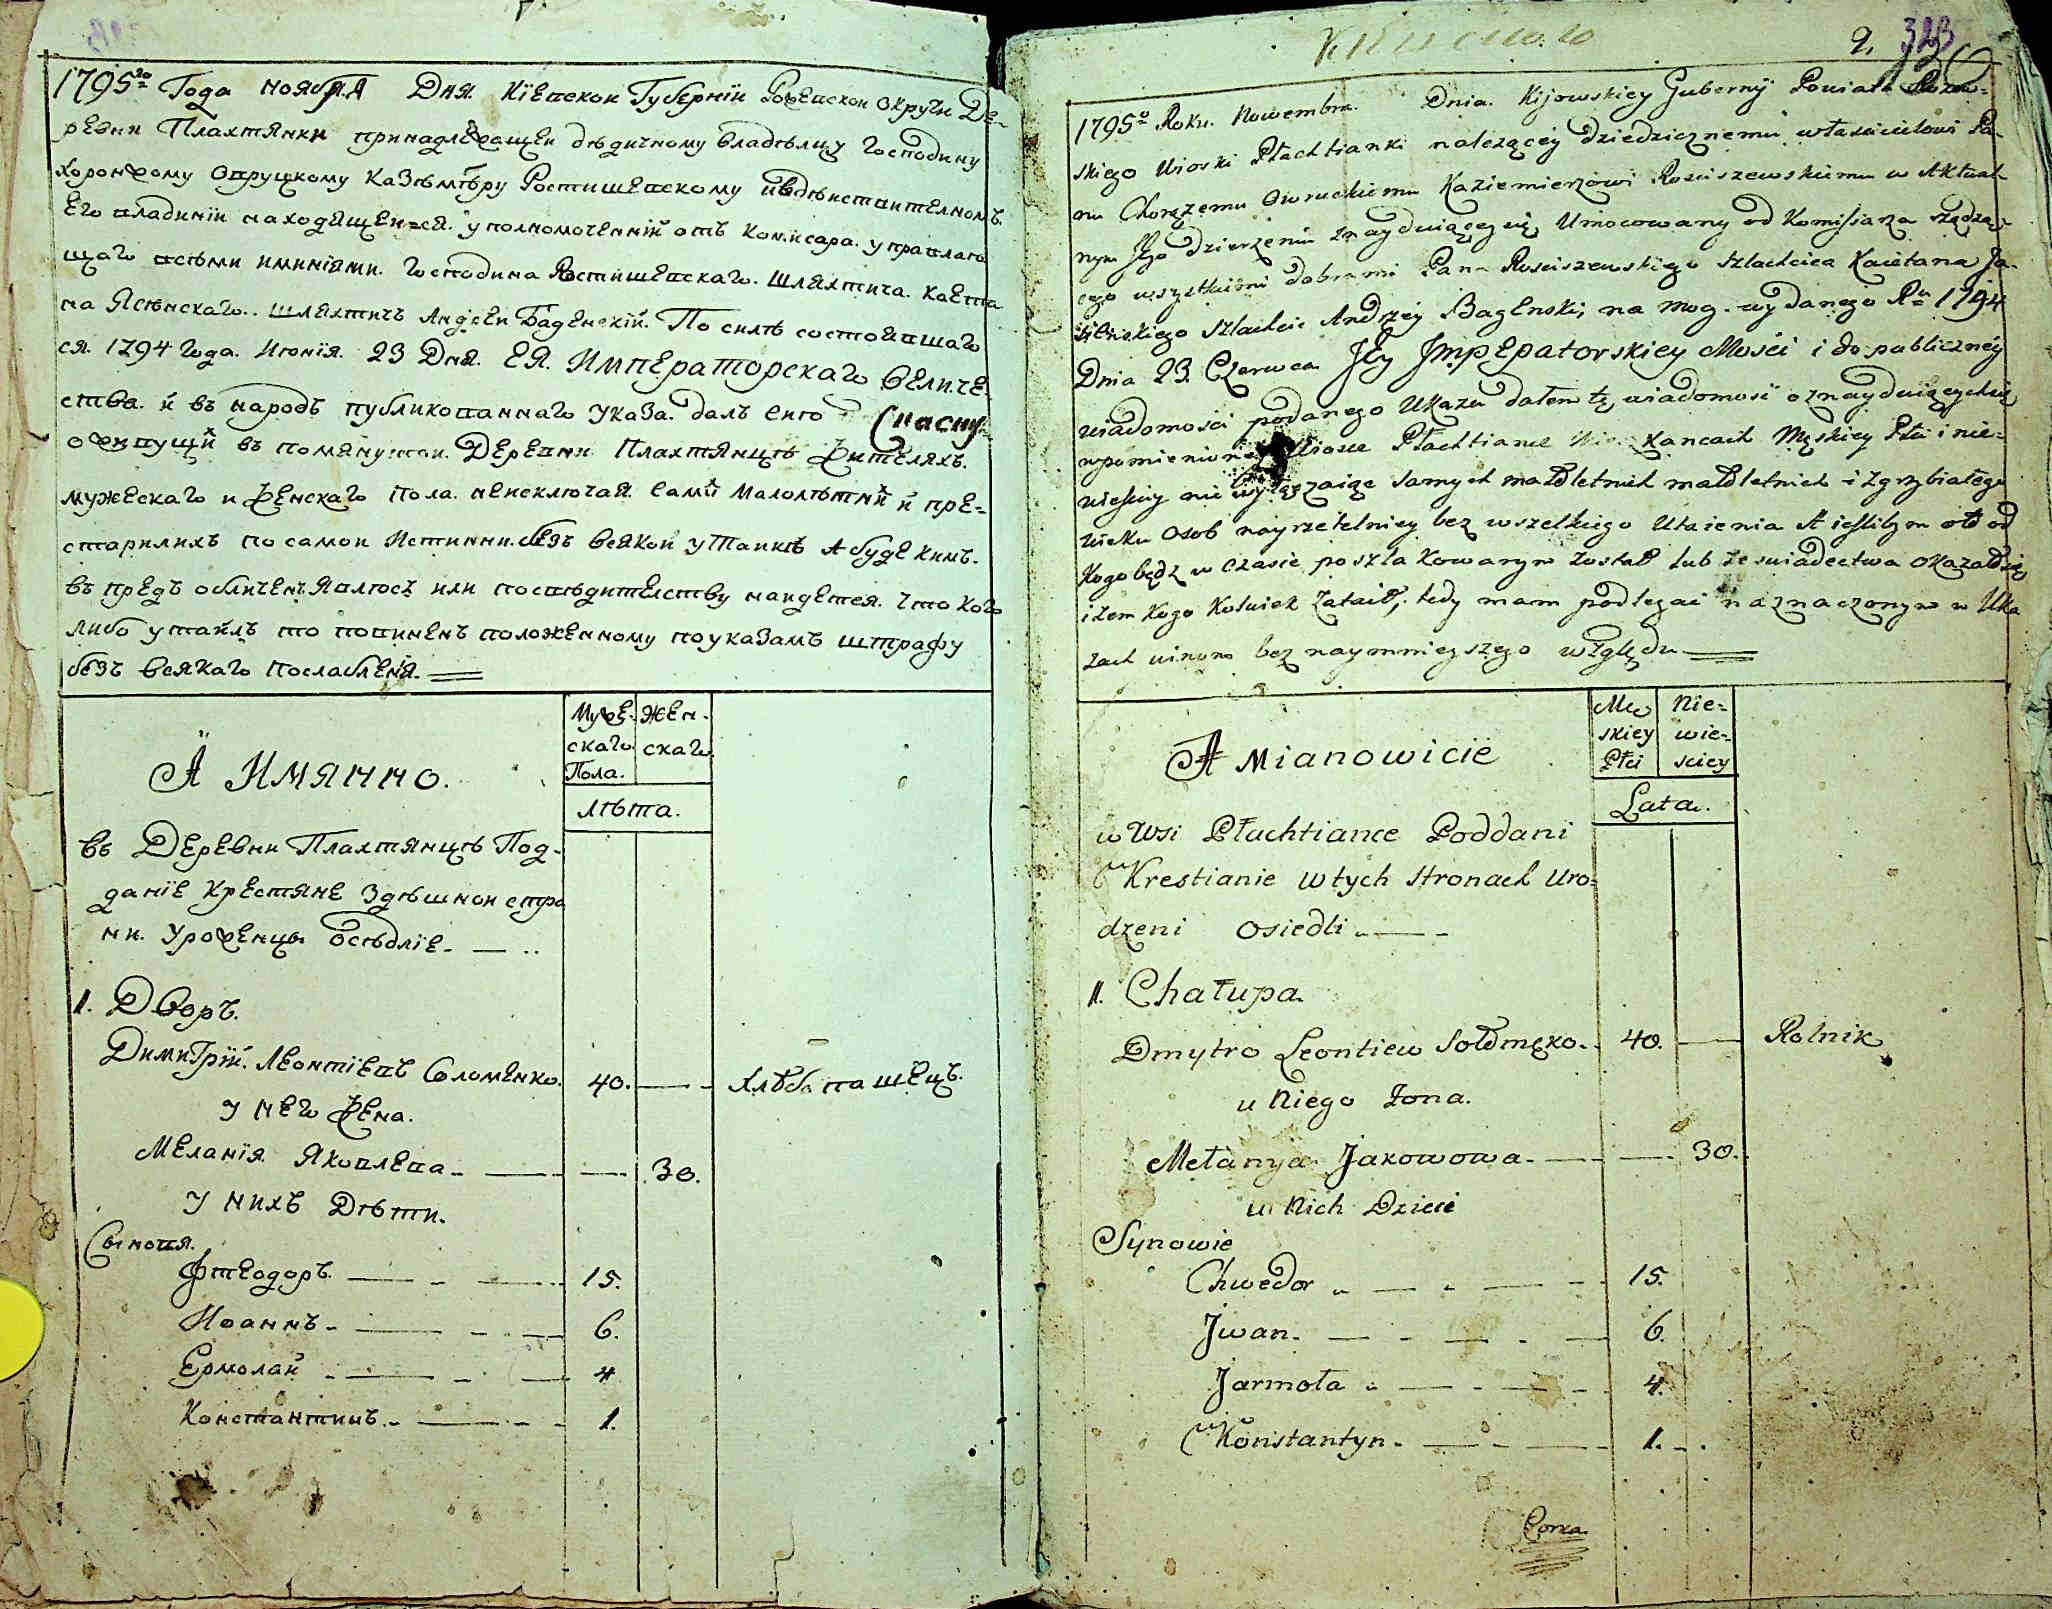 1795го Года ноября Дня. Кіевской Губернїи Рожевской округи Де-
ревни Плахтянки принадлежащеи дѣдичному владѣльцу Господину
Хоронжому Овруцкому Казѣмѣру Ростишевскому и въ дѣиствителномъ
Его владинїи находящеи=ся. уполномоченнїй отъ Комисара. управляю
щаго всѣми иминїями. Господина Ростишевскаго. Шляхтича. Каета
на Ясѣнскаго.. шляхтичъ Андреи Баденскїй. По силѣ состоявшаго
ся. 1794 года. Июнїя. 23 Дня. ЕЯ. Императорскаго Величе-
ства. й въ народъ публикованнаго Указа. далъ сию Списку
о живущи въ помянутои. Деревни Плахтянцѣ жителяхъ.
мужескаго и женскаго пола. неисключая. самй малолѣтнй й пре=
старилихъ по самои Истинни. безъ всякои утаики А буде кимъ.
въ предъ обличенъ Явлюсъ или послѣдителству наидется. что кого
либо утаилъ то повиненъ положенному по указамъ штрафу
безъ всякаго послабленя.
А ИМЯННО.
Муже- Жен-
скаго скаго.
Пола.
лѣта.
въ Деревни Плахтянцѣ Под-
данїе крестяне здѣшнои стро
ни. уроженцы осѣдлїе.
1. Дворъ.
Димитрїй. Леонтїевъ Соломенко. 40. Хлѣбопашецъ.
у него жена.
Меланїя Яковлева. 30.
у нихъ Дѣти.
Сыновя.
Фтеодоръ. 15.
Иоаннъ. 6.
Ермолай 4
Константинъ. 1.
2. 323
1795o Roku. Nowembra. Dnia. Kijowskiey Guberny Powiatu
skiego Wioski Płachtianki nalezącey dziedzicznemu własicielowi Pa-
nu Chorązemu Owruckiemu Kazimierzowi Rosciszewskiemu w Aktual-
nym Jego dzierzeniu znayduiącey się, Umocowany od Komissarza rządzą-
cego wszystkiemi dobrami Pana Rosciszewskiego Szlachcica Kaietana Ja-
sienskiego Szlachcic Andrzey Bagenski; na mog. wydanego Ru 1794
Dnia 23. Czerwca Jey Jmperatorskiey Mosci i do publiczney
wiadomosci podanego Ukazu dałem tę wiadomosc o znayduiących się
wpomienioney Wiosce Płachtiance Mieszkancach Męskiey Płci i nie=
wiesciey nie wyłączaiąc samych małoletnich i Zgrzybiałego
wieku Osob nayrzetelniey bez wszelkiego Utaienia A iesliбym od
kogo bądz w czasie poszlakowanym został lub ze swiadectwa okazało się
iżem kogo kolwiek zataił, tedy mam podlegac naznaczonym w Uka
zach winom bez naymnieyszego względu
A Mianowicie
Mę Nie=
skiey wie-
Płci sciey
Lata.
w Wsi Płachtiance Poddani
Krestianie w tych stronach Uro-
dzeni Osiedli
1. Chałupa.
Dmytro Leontiew Sołomęko. 40. Rolnik
u Niego Zona.
Mełanya Jakowowa. 30.
u Nich Dzieci
Synowie
Chwedor 15.
Jwan. 6.
Jarmoła 4.
Konstantyn. 1.
Corka